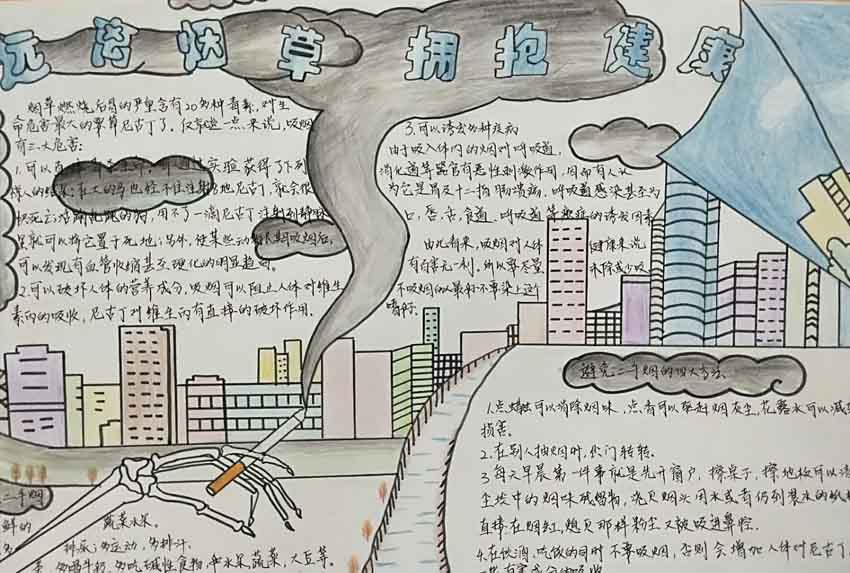 远离烟草 拥抱健康
烟草燃烧后冒的
里含有20多种毒素，对生
命危害最大的要算尼古丁了。仅就这一点来说，吸烟
有三大危害：
1.可以
实验获得了下列
惊人的结果：
注射
尼古丁，就会很
快死亡
用不了一滴尼古丁注射到静脉
就可以将它置于死地；另外，使某些动
吸烟后，
可以发现有血管收缩甚至硬化的明显趋向。
2.可以破坏人体的营养成分。吸烟可以阻止人体对维生
素丙的吸收，尼古丁对维生丙有直接的破坏作用。
3.可以诱发多种疾病
由于吸入体内的烟对呼吸道，
消化道等器官有恶性刺激作用，因而有人认
为它是胃及十二指肠溃病，呼吸道感染甚至为
口，唇，舌，食道，呼吸道等癌症的诱发因素
由此看来，吸烟对人体
健康来说
有百害无一利。所以要尽量
戒除或少吸
不吸烟
最好不要染上这个
嗜好。
避免二手烟的四大方法
1.点蜡烛可以消除烟味，点香可以驱赶烟灰尘，花露水可以减
损害。
2.在别人抽烟时，出门转转。
3.每天早晨第一件事就是先开窗户，擦桌子，擦地板可以
尘埃中的烟味残留物，
烟头用水或者仍到装水的
直接在烟缸，
那样粉尘又被吸进鼻腔。
4.在饮酒，吃饭的同时不要吸烟，否则会增加人体对尼古丁
二手烟
鲜的
蔬菜水果。
多运动，多排汗。
多喝牛奶，多吃碱性食物，
水果，蔬菜，大豆等。